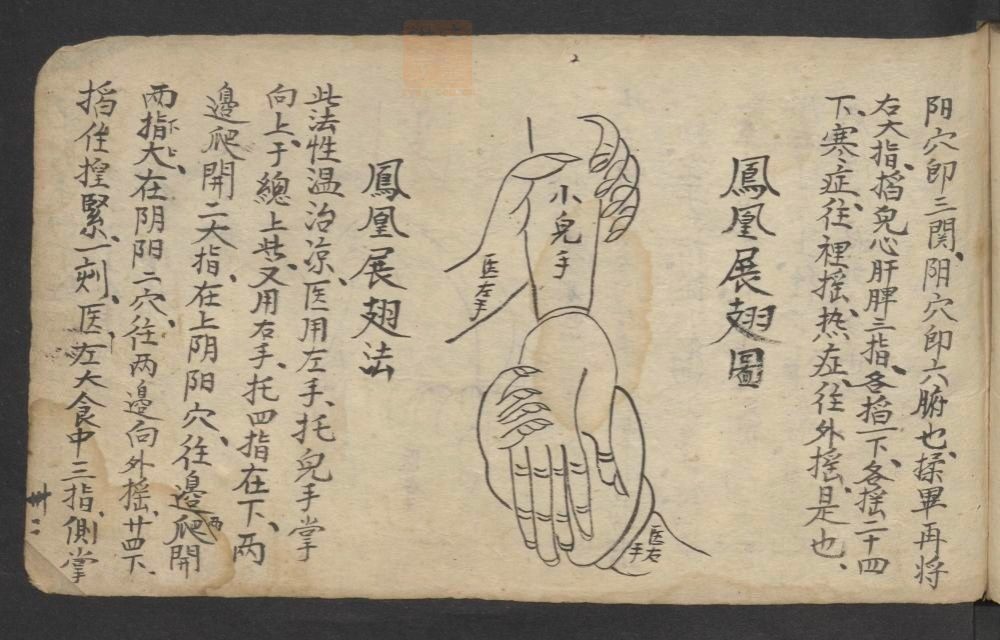 阳穴即三関、阴穴即六腑也、揉畢再将
右大指、掐兒心肝脾三指、各掐一下、各摇二十四
下、寒症、往裡摇、热症、往外摇、是也、
鳳凰展翅圖
小兒手
医左手
医右手
鳳凰展翅法
此法性温治凉、医用左手、托兒手掌
向上、于總上些、又用右手、托四指在下、两
邊爬開二大指、在上阴阳穴、往两邊爬開
两指大、在阴阳二穴、往两邊向外摇、廿四下、
下上
掐住揑緊一刻、医左大食中三指、側掌
卅二